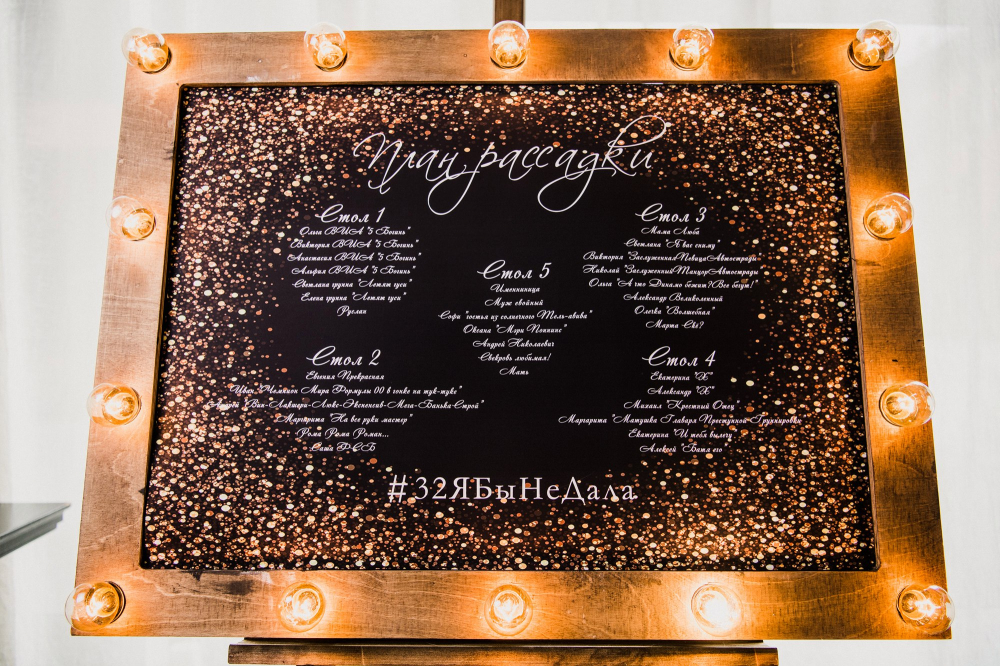 План рассадки
Стол 1
Ольга ВИА "5 Богинь"
Виктория ВИА "5 Богинь"
Анастасия ВИА "5 Богинь"
Альфия ВИА "5 Богинь"
Светлана группа "Летят гуси"
Елена группа "Летят гуси"
Руслан
Стол 2
Евгения Прекрасная
Иван "Чемпион Мира Формулы 00 в гонке на тук-туке"
Андрей "Вип-Лакшери-Люкс-Экспенсив-Мега-Банька-Строй"
Маргарита "На все руки мастер"
Рома Рома Роман...
Саша РСБ
Стол 5
Именинница
Муж евойный
Софи "гостья из солнечного Тель-авива"
Оксана "Мэри Поппинс"
Андрей Николаевич
Свекровь любимая!
Мать
Стол 3
Мама Люба
Светлана "Я вас сниму"
Виктория "ЗаслуженнаяПевицаАвтострады"
Николай "ЗаслуженныйТанцорАвтострады"
Ольга "А что Динамо бежит?Все бегут!"
Александр Великолепный
Олечка "Волшебная"
Марта Скё?
Стол 4
Екатерина "Х"
Александр "Х"
Михаил "Крестный Отец"
Маргарита "Матушка Главаря Преступной Группировки"
Екатерина "И тебя вылечу"
Алексей "Батя его"
#32ЯБыНеДала